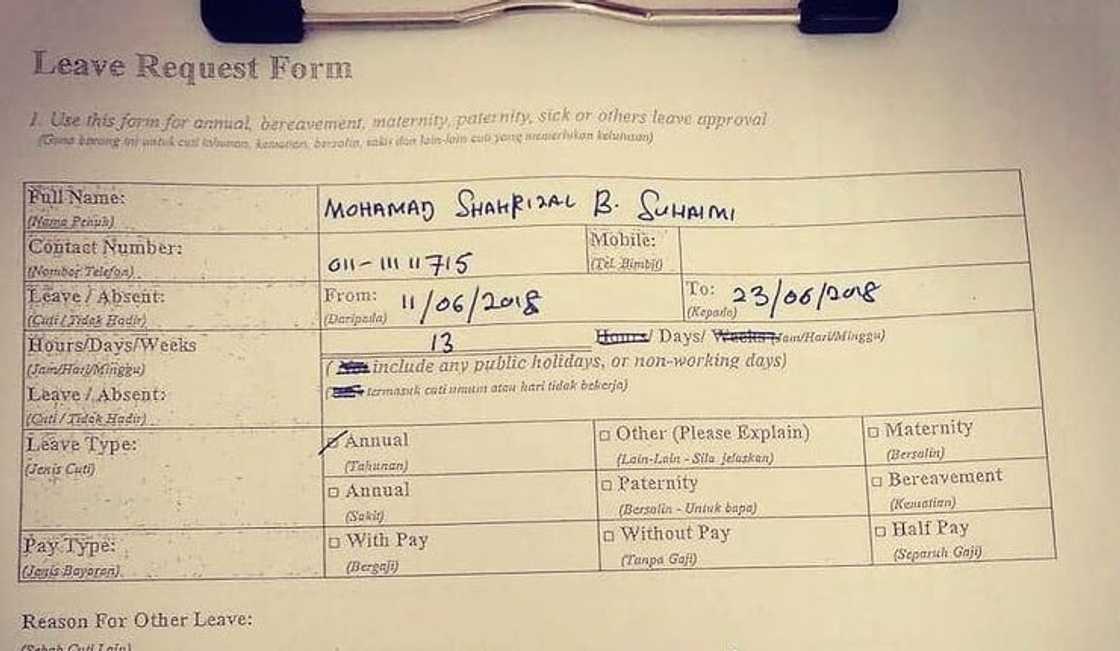 Leave Request Form
1. Use this form for annual, bereavement, maternity, paternity, sick or others leave approval
(Guna borang ini untuk cuti tahunan, kematian, bersalin, sakit dan lain-lain cuti yang memerlukan kelulusan)
Full Name: MOHAMAD SHAHRIZAL B. SUHAIMI
(Nama Penuh)
Contact Number: 011-11111715 Mobile:
(Nombor Telefon) (Tel. Bimbit)
Leave / Absent: From: 11/06/2018 To: 23/06/2018
(Cuti / Tidak Hadir) (Daripada) (Kepada)
Hours/Days/Weeks 13 Hours/ Days/ Weeks (Jam/Hari/Minggu)
(Jam/Hari/Minggu) ( include any public holidays, or non-working days)
Leave / Absent: ( termasuk cuti umum atau hari tidak bekerja)
(Cuti / Tidak Hadir)
Leave Type: Annual □ Other (Please Explain) □ Maternity
(Jenis Cuti) (Tahunan) (Lain-Lain - Sila Jelaskan) (Bersalin)
□ Annual □ Paternity □ Bereavement
(Sakit) (Bersalin - Untuk bapa) (Kematian)
Pay Type: □ With Pay □ Without Pay □ Half Pay
(Jenis Bayaran) (Bergaji) (Tanpa Gaji) (Separuh Gaji)
Reason For Other Leave:
(Sebab Cuti Lain)